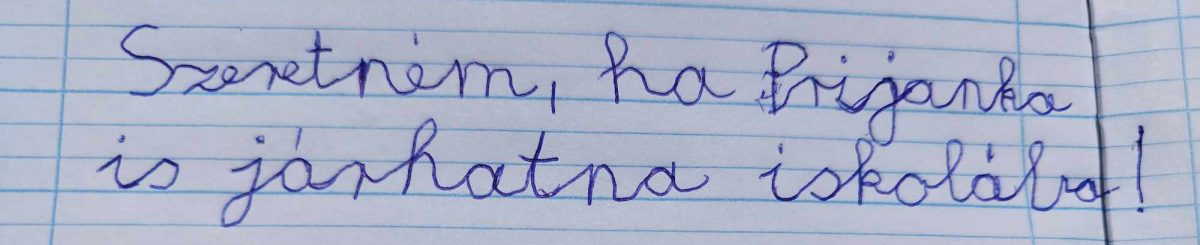 Szeretném, ha Prijanka
is járhatna iskolába!